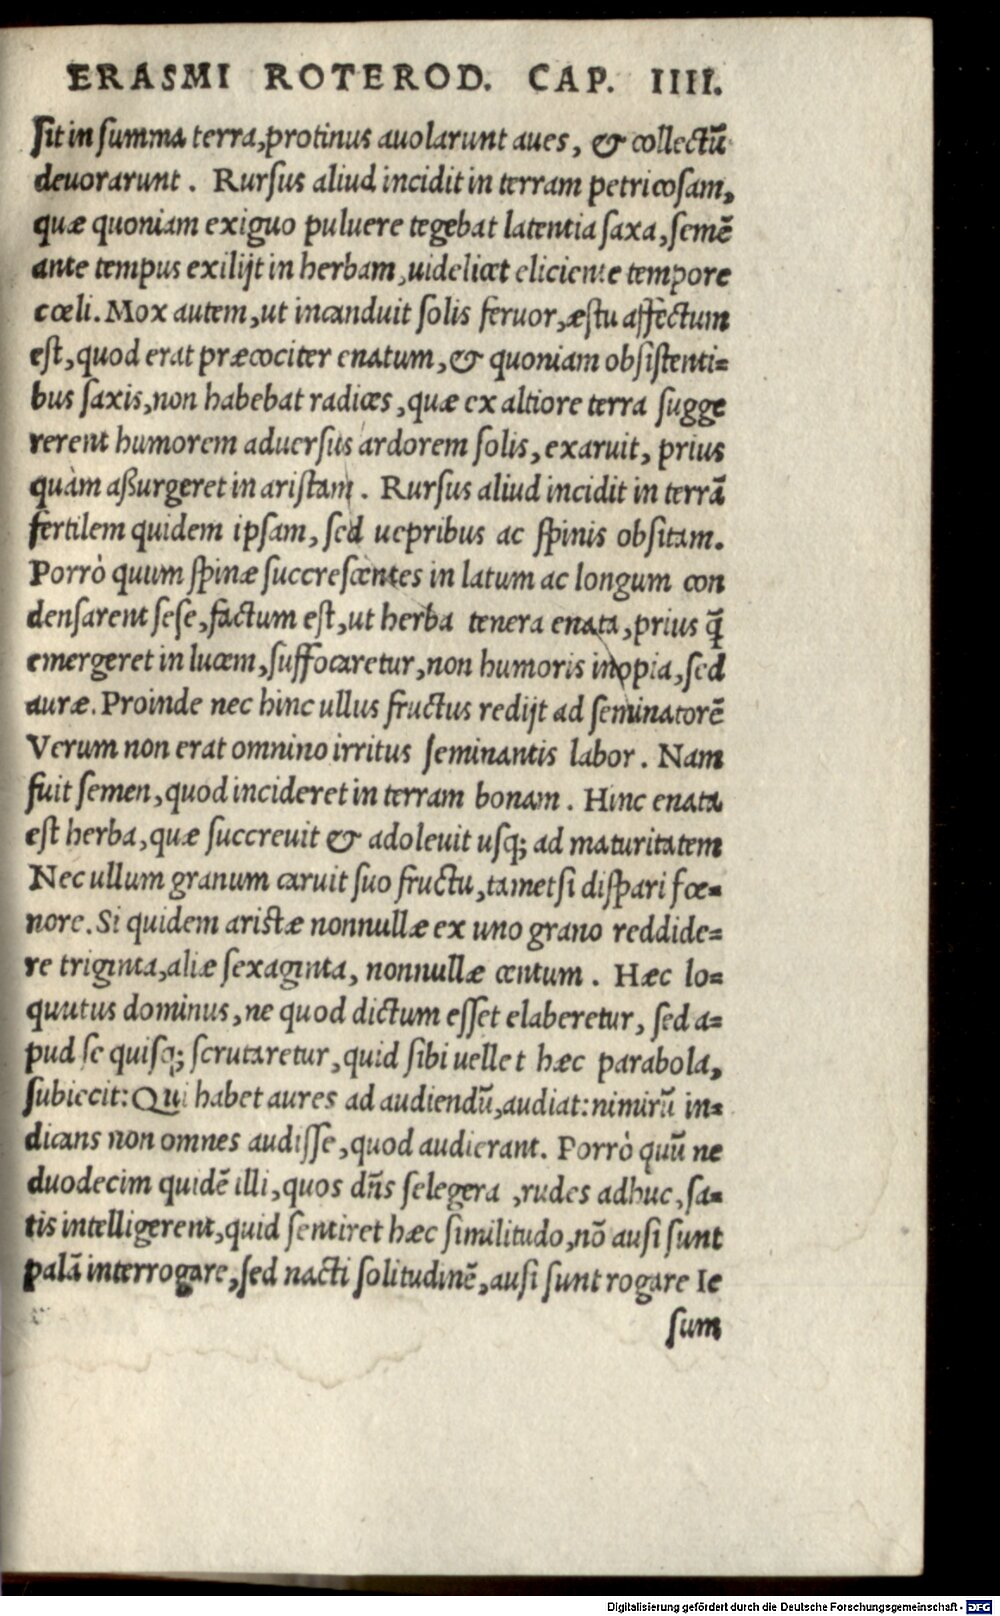 ERASMI ROTEROD. CAP. IIII.
ſit in ſumma terra, protinus auolarunt aues, & collectū
deuorarunt. Rurſus aliud incidit in terram petricoſam,
quæ quoniam exiguo puluere tegebat latentia ſaxa, ſemē
ante tempus exilijt in herbam, uidelicet eliciente tempore
cœli. Mox autem, ut incanduit ſolis feruor, æſtu affectum
eſt, quod erat præcociter enatum, & quoniam obſiſtenti-
bus ſaxis, non habebat radices, quæ ex altiore terra ſugge
rerent humorem aduerſus ardorem ſolis, exaruit, prius
quàm aßurgeret in ariſtam. Rurſus aliud incidit in terrā
fertilem quidem ipſam, ſed uepribus ac ſpinis obſitam.
Porrò quum ſpinæ ſuccreſcentes in latum ac longum con
denſarent ſeſe, factum eſt, ut herba tenera enata, prius q̄
emergeret in lucem, ſuffocaretur, non humoris inopia, ſed
auræ. Proinde nec hinc ullus fructus redijt ad ſeminatorē
Verum non erat omnino irritus ſeminantis labor. Nam
fuit ſemen, quod incideret in terram bonam. Hinc enata
eſt herba, quæ ſuccreuit & adoleuit uſq; ad maturitatem
Nec ullum granum caruit ſuo fructu, tametſi diſpari fœ-
nore. Si quidem ariſtæ nonnullæ ex uno grano reddide-
re triginta, aliæ ſexaginta, nonnullæ centum. Hæc lo-
quutus dominus, ne quod dictum eſſet elaberetur, ſed a-
pud ſe quiſq; ſcrutaretur, quid ſibi uellet hæc parabola,
ſubiecit: Qui habet aures ad audiendū, audiat: nimirū in-
dicans non omnes audiſſe, quod audierant. Porrò quū ne
duodecim quidē illi, quos dn̄s ſelegera , rudes adhuc, ſa-
tis intelligerent, quid ſentiret hæc ſimilitudo, nō auſi ſunt
palā interrogare, ſed nacti ſolitudinē, auſi ſunt rogare Ie
ſum
Digitalisierung gefördert durch die Deutsche Forschungsgemeinschaft - DFG